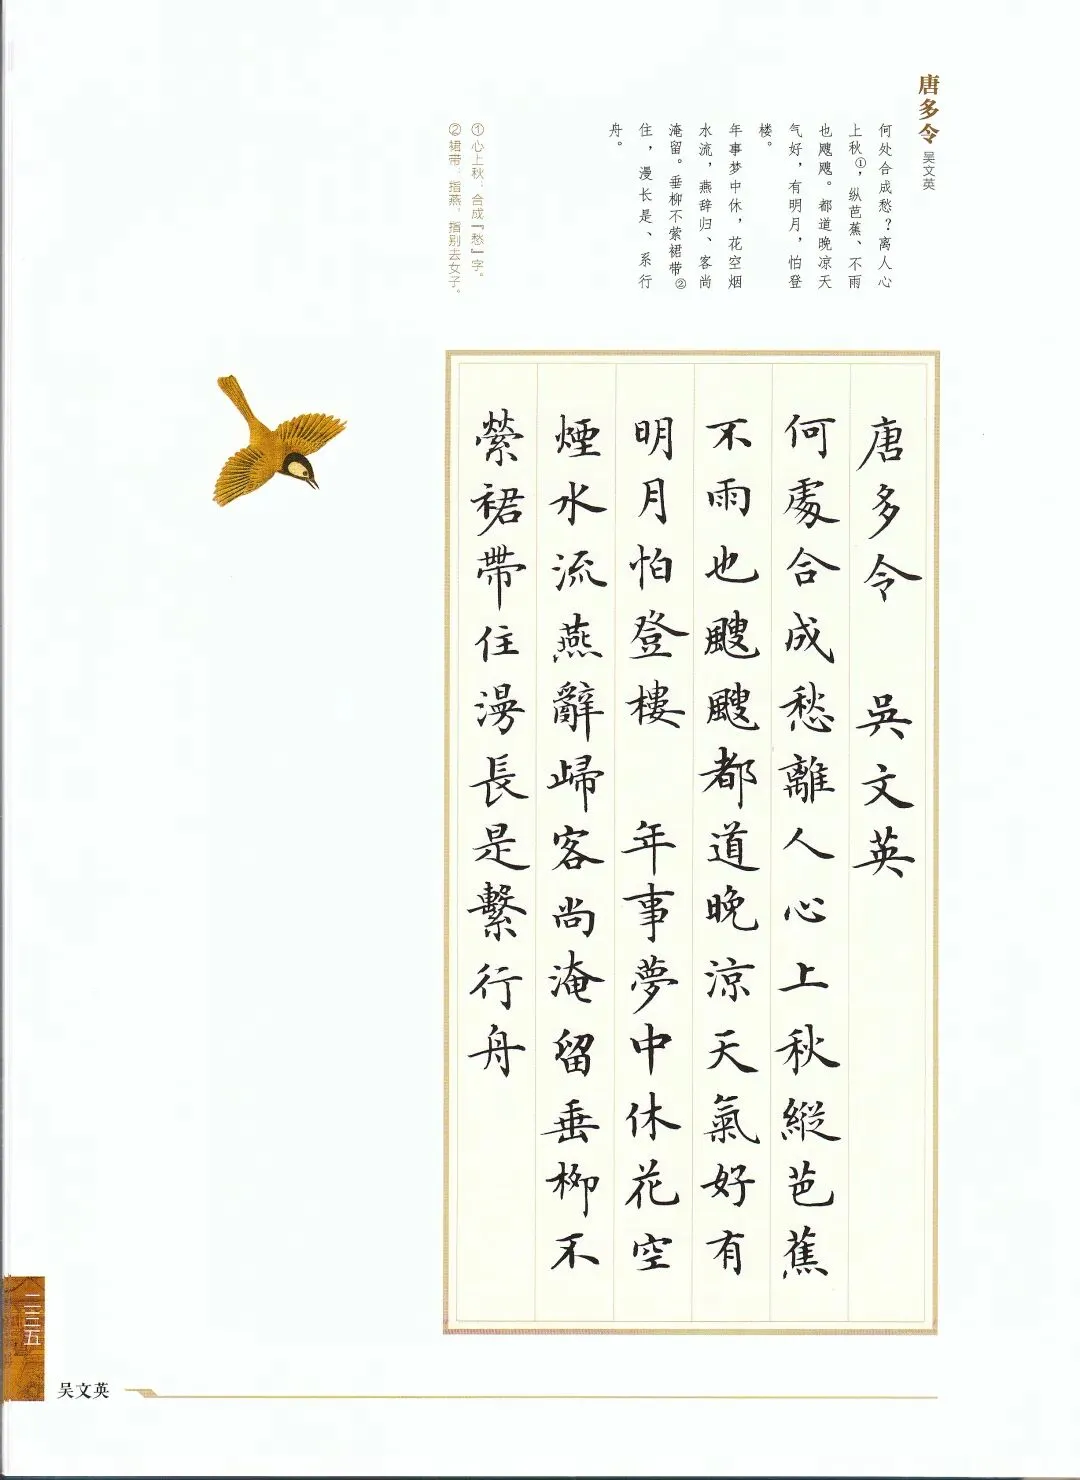 唐多令 吴文英
何处合成愁？离人心
上秋①，纵芭蕉、不雨
也飕飕。都道晚凉天
气好，有明月，怕登
楼。
年事梦中休，花空烟
水流，燕辞归、客尚
淹留。垂柳不萦裙带②
住，漫长是、系行
舟。
①心上秋：合成『愁』字。
②裙带：指燕，指别去女子。
唐多令 吳文英
何處合成愁離人心上秋縱芭蕉
不雨也颼颼都道晚涼天氣好有
明月怕登樓 年事夢中休花空
煙水流燕辭歸客尚淹留垂柳不
縈裙帶住漫長是繫行舟
二三五
吴文英